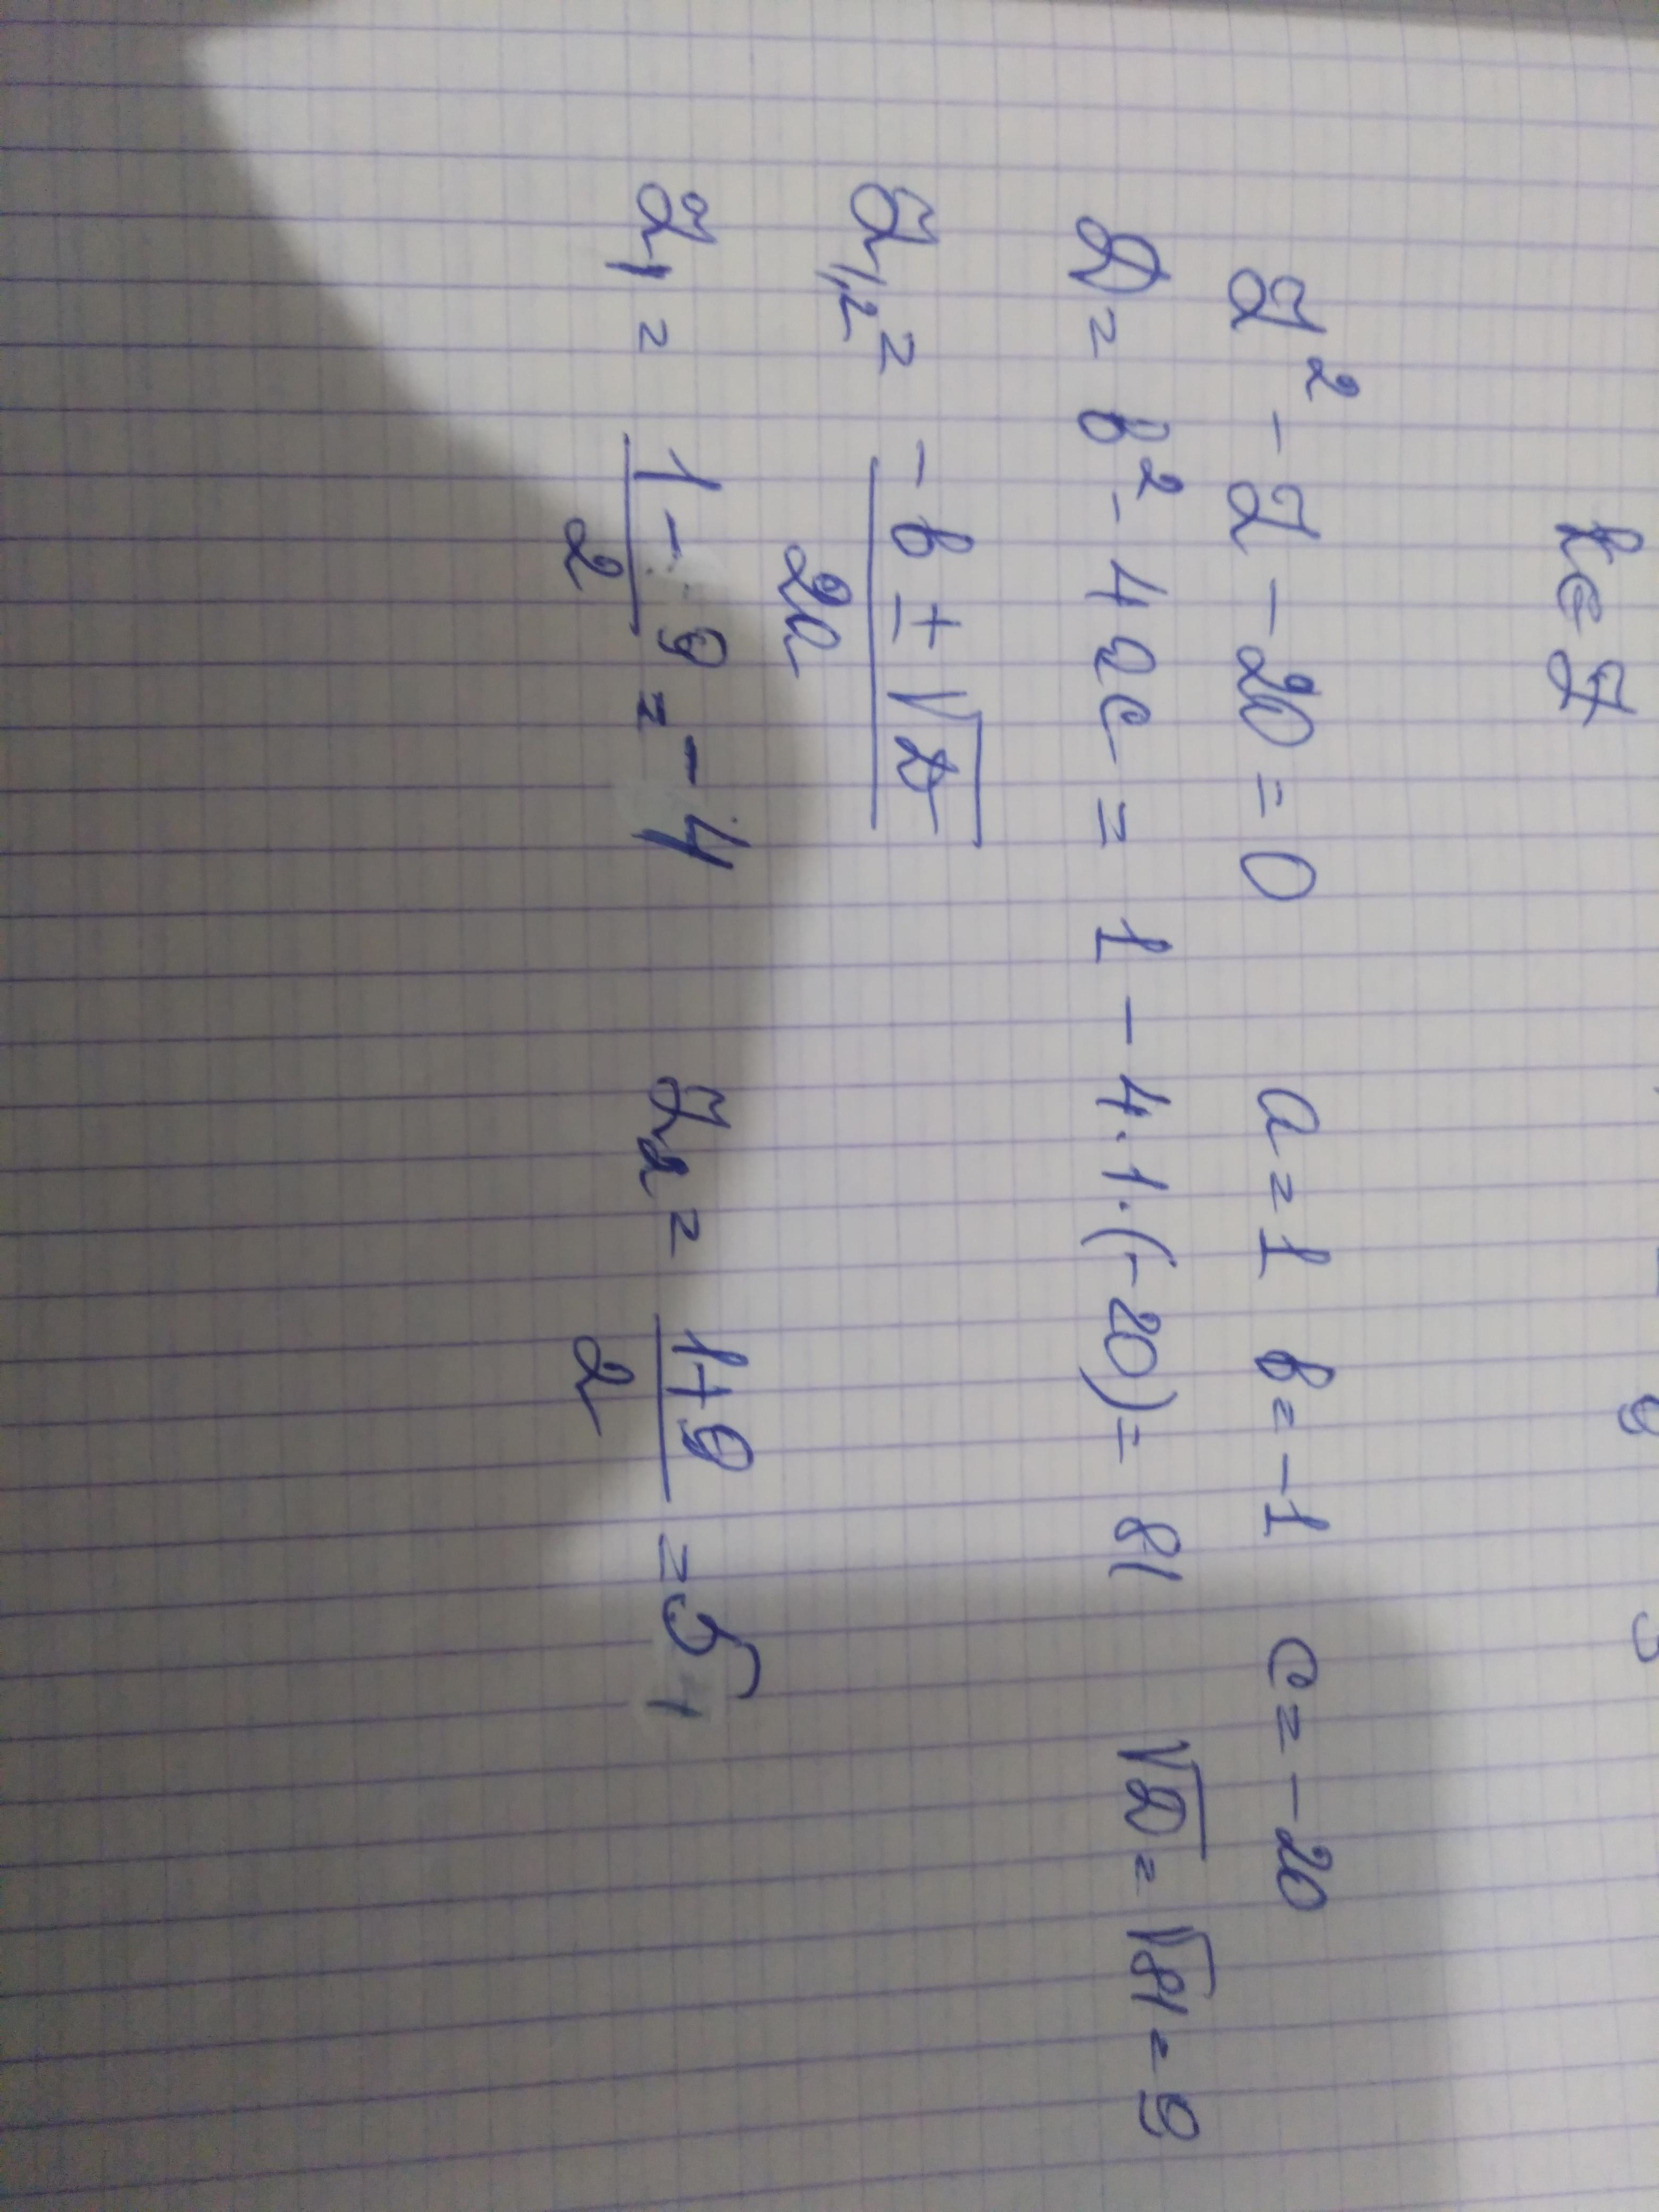 №7
Z² - Z - 20 = 0 a = 1 b = -1 c = -20
D = b² - 4ac = 1 - 4·1·(-20) = 81 √D = √81 = 9
Z₁,₂ = (-b ± √D)/2a
Z₁ = (1 - 9)/2 = -4 Z₂ = (1+9)/2 = 5